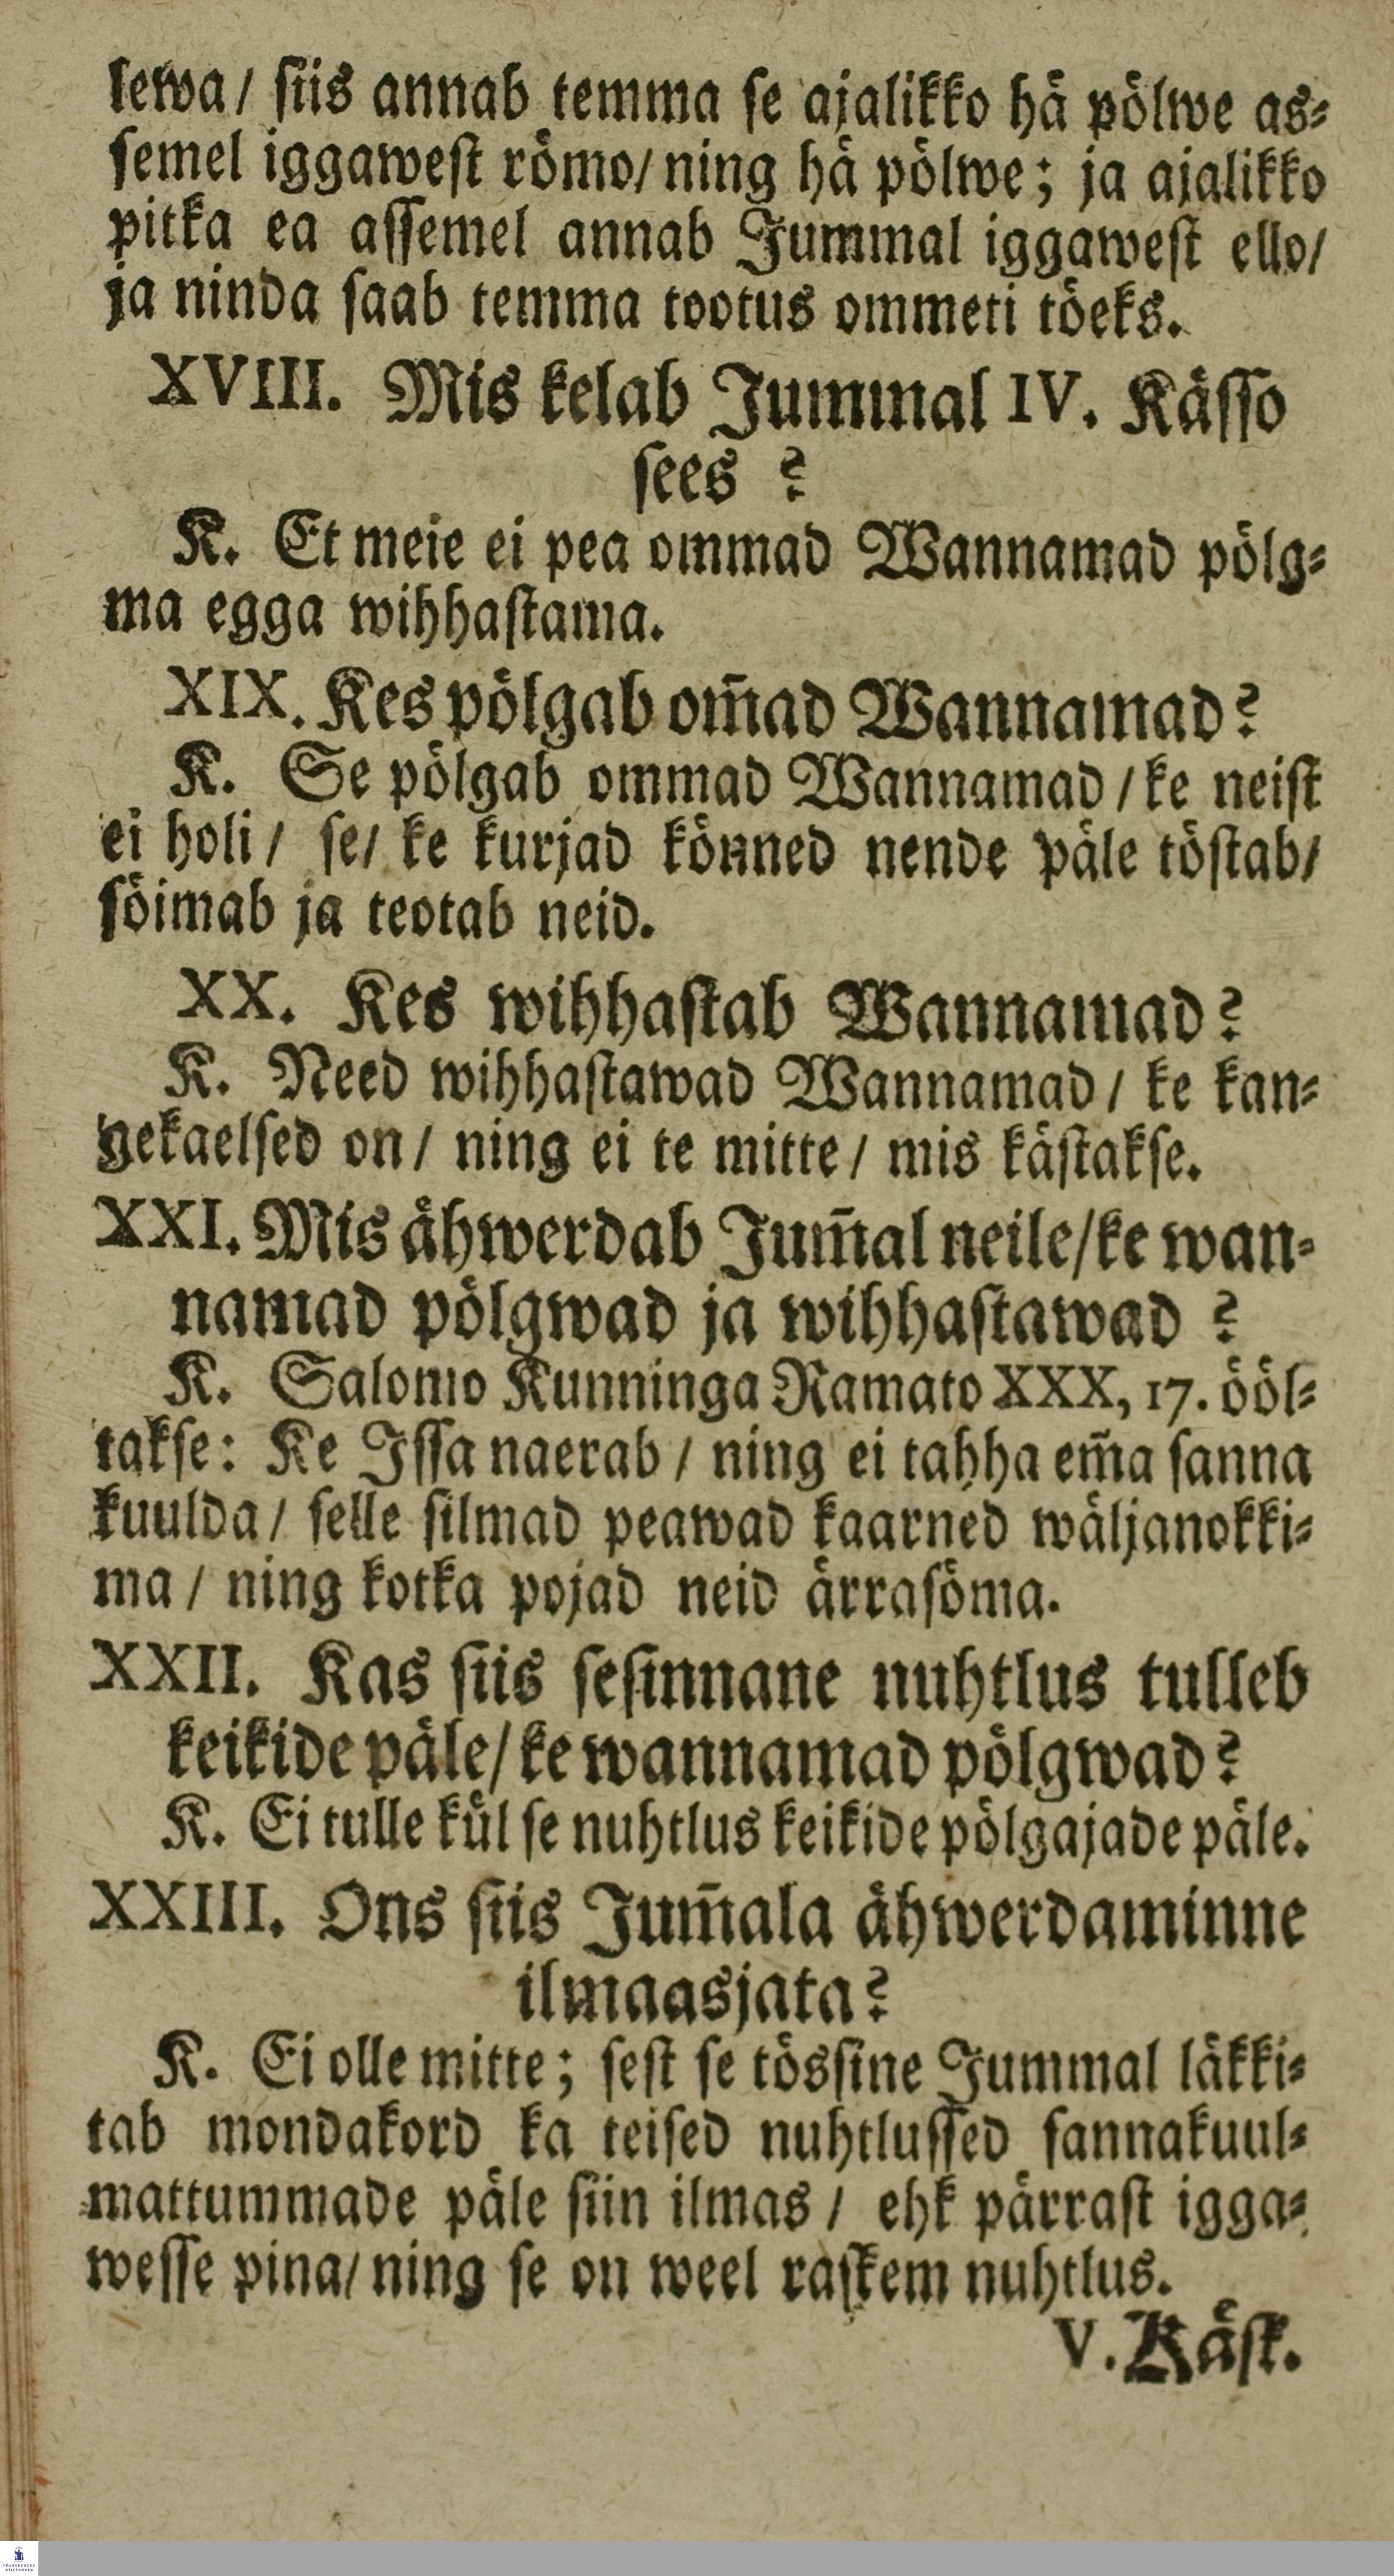 lewa/ ſiis annab temma ſe ajalikko hä pölwe as⸗
ſemel iggaweſt römo/ ning hä pölwe; ja ajalikko
pitka ea aſſemel annab Jummal iggaweſt ello/
ja ninda ſaab temma tootus ommeti töeks.
XVIII. Mis kelab Jummal IV. Käſſo
ſees ?
K. Et meie ei pea ommad Wannamad pölg⸗
ma egga wihhaſtama.
XIX. Kes pölgab om̄ad Wannamad?
K. Se pölgab ommad Wannamad/ ke neiſt
ei holi/ ſe/ ke kurjad könned nende päle töſtab/
ſöimab ja teotab neid.
XX. Kes wihhaſtab Wannamad?
K. Need wihhaſtawad Wannamad/ ke kan⸗
gekaelſed on/ ning ei te mitte/ mis käſtakſe.
XXI. Mis ähwerdab Jum̄al neile/ke wan⸗
namad pölgwad ja wihhaſtawad ?
K. Salomo Kunninga Ramato XXX, 17. ööl⸗
takſe: Ke Iſſa naerab/ ning ei tahha em̄a ſanna
kuulda/ ſelle ſilmad peawad kaarned wäljanokki⸗
ma/ ning kotka pojad neid ärraſöma.
XXII. Kas ſiis ſeſinnane nuhtlus tulleb
keikide päle/ ke wannamad pölgwad?
K. Ei tulle kül ſe nuhtlus keikide pölgajade päle.
XXIII. Ons ſiis Jum̄ala ähwerdaminne
ilmaasjata?
K. Ei olle mitte; ſeſt ſe tösſine Jummal läkki⸗
tab mondakord ka teiſed nuhtluſſed ſannakuul⸗
mattummade päle ſiin ilmas/ ehk pärraſt igga⸗
weſſe pina/ ning ſe on weel raſkem nuhtlus.
V. Käſk.
FRANCKESCHE
STIFTUNGEN